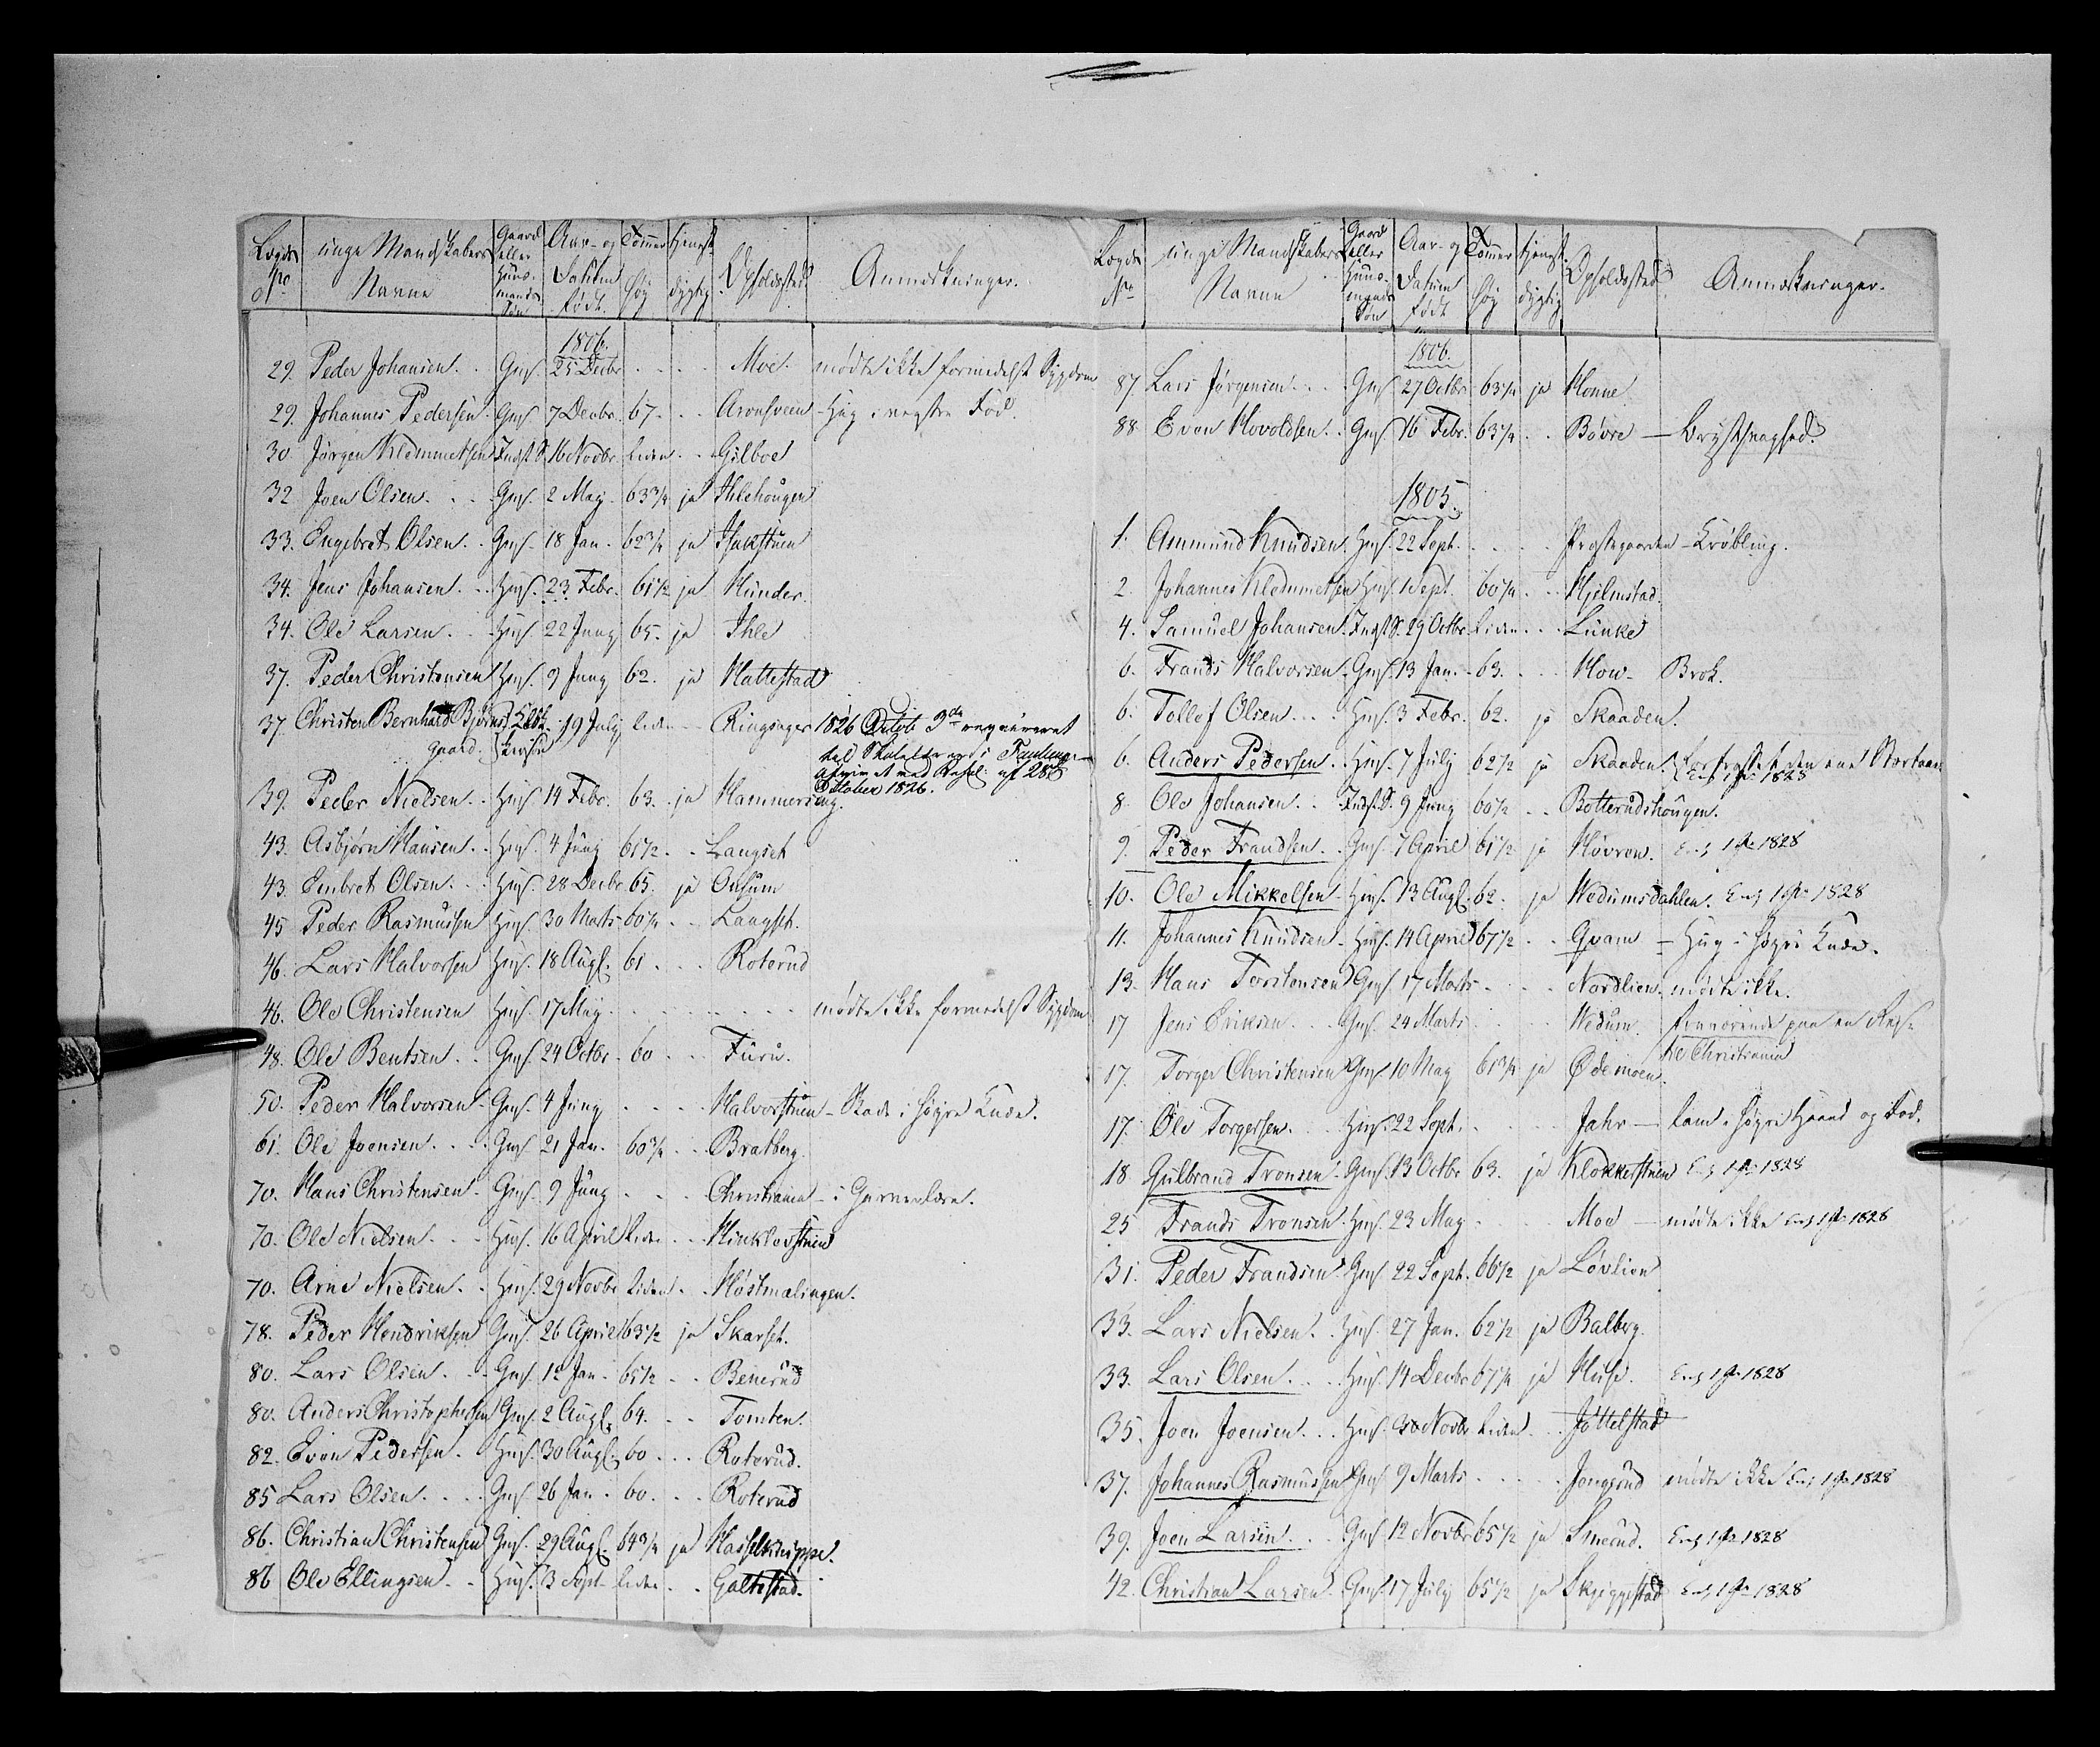 Lægds No | unge Mandskabers Navne | Gaard eller Huusmands Søn | Aar- og Datum født | Tommer høy | tjenstdygtig | Opholdssted | Anmærkninger.
1806.
29. Peder Johansen. Gms. 25 Decbr. Moe. mødte ikke formedelst Sygdom
29. Johannes Pedersen. Gms. 7 Decbr. 67. Aronsveen - Hug i venstre Fod.
30. Jørgen Klemmetsen Indst. S. 16 Novbr. liden Gilboe
32. Joen Olsen. Gms. 2 May 63 3/4 ja Ihlehougen
33. Engebret Olsen. Gms. 18 Jan. 62 3/4 ja Isakstuen
34. Jens Johansen. Hms. 23 Febr. 61 1/2 ja Hunder.
34. Ole Larsen. Hms. 22 Juny 65. ja Ihle
37. Peder Christensen Hms. 9 Juny 62. ja Hattestad
37. Christen Bernhard Bjørnsgaard. 19 July liden Ringsager 1826 Octob. 9de reqvireret
October 1826.
39. Peder Nielsen. Hms. 14 Febr. 63. ja Hammerseng.
43. Asbjørn Hansen. Hms. 4 Juny 61 1/2 Langset
43. Embret Olsen. Hms. 28 Decbr. 65. ja Onsum
45 Peder Rasmussen Hms. 30 Marts 60 1/4 Langset.
46. Lars Halvorsen Hms. 18 Augs. 61 Roterud
46. Ole Christensen Hms. 17 May mødte ikke formedelst Sygdom
48. Ole Bentsen. Gms. 24 Octbr. 60 Furu.
50. Peder Halvorsen Gms. 4 Juny Halvorstuen - Skade i høyre Knæe.
61. Ole Joensen. Gms. 21 Jan. 60 3/4 Bratberg.
70. Hans Christensen. Gms. 9 Juny Christiania - i Garverlære.
70. Ole Nielsen. Hms. 16 April liden Hinklevstuen
70. Arne Nielsen. Hms. 29 Novbr. liden Høstmælingen.
78. Peder Hendriksen Gms. 26 April 63 1/2 ja Skarset.
80. Lars Olsen. Gms. 12 Jan. 65 1/2 Benerud
80. Anders Christophersen Gms. 2 Augs. 64. Tomten.
82. Even Pedersen. Hms. 30 Augs. 60 Roterud.
85 Lars Olsen. Gms. 26 Jan. 60. Roterud
86. Christian Christensen Gms. 29 Augs. 64 3/4 ja Hasselknippe.
86 Ole Ellingsen. Hms. 3 Sept. liden Galtestad.
Lægds No | unge Mandskabers Navne | Gaard eller Huusmands Søn | Aar- og Datum født | Tommer høy | tjenstdygtig | Opholdssted | Anmærkninger.
1806.
87. Lars Jørgensen. Gms. 27 Octbr. 63 1/4 ja Honne
88 Even Hovoldsen. Gms. 16 Febr. 63 1/4 Bøvre - Brystsvaghed.
1805.
1. Ammund Knudsen. Hms. 22 Sept. Prestegaarden - Krøbling.
2. Johannes Klemmetsen Hms. 1 Sept. 60 1/4 Hjelmstad.
4. Samuel Johansen. Indst. S. 29 Octbr. liden Lunke
6. Frands Halvorsen. Gms. 13 Jan. 63. How - Brok.
6. Tollef Olsen. Hms. 3 Febr. 62. ja Skaaden.
6. Anders Pedersen. Hms. 7 July 62 1/2 ja Skaaden. 1828
8. Ole Johansen. Indst. S. 9 Juny 60 1/2 Botterudshougen.
9. Peder Frandsen. Gms. 7 April 61 1/2 ja Høvren. 1828
10. Ole Mikkelsen. Hms. 13 Augs. 62. ja Wedumsdahlen. 1828
11. Johannes Knudsen. Hms. 14 April 67 1/2 Qvam - Hug i høyre Knæe.
13. Hans Torstensen Gms. 17 Marts Nordlien. mødte ikke.
17 Jens Eriksen. Gms. 24 Marts Wedum. fraværende paa en Reise
til Christiania
17. Torger Christensen Gms. 10 May 61 3/4 ja Ødemoen.
17. Ole Torgersen. Hms. 22 Sept. Jahr - lam i høyre Haand og Fod.
18 Gulbrand Tronsen. Gms. 13 Octbr. 63. ja Klokkerstuen 1828
25 Frands Tronsen. Hms. 23 May Moe - mødte ikke 1828
31. Peder Frandsen. Gms. 22 Sept. 66 1/2 ja Løvlien
33. Lars Nielsen. Hms. 27 Jan. 62 1/2 ja Balberg.
33. Lars Olsen. Hms. 14 Decbr. 67 1/4 ja Huse. 1828
35. Joen Joensen. Hms. 30 Novbr. liden Jöttelstad
37. Johannes Rasmussen Gms. 9 Marts Jongsrud mødte ikke 1828
39. Joen Larsen. Gms. 12 Novbr. 65 1/2 ja Smerud. 1828
42. Christian Larsen. Gms. 17 July 65 1/2 ja Skjeggestad 1828